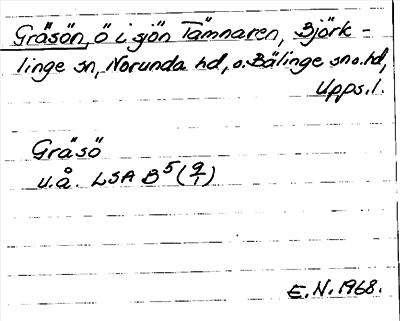 Gräsön, ö i sjön Tämnaren, Björk-
linge sn, Norunda hd, o. Bälinge sn o. hd,
Upps. l.
Gräsö
u.å. LSA B⁵ (9/1)
E.N. 1968.